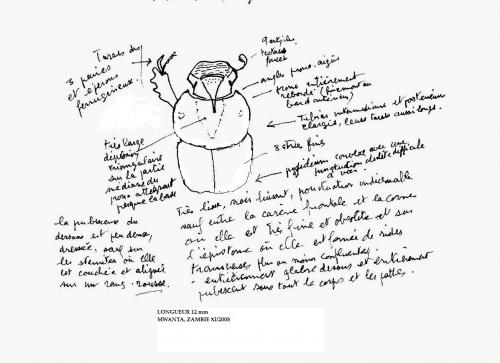 Tarses des
3 paires
et éperons
ferrugineux.
9 articles
testacé
angles prono. aigus
prono entièrement
rebordé (finement au
bord antérieur)
Tibias intermédiaires et postérieurs
élargis, leurs tarses aussi longs.
8 stries fines
pygidium convexe avec une
ponctuation difficile
à voir
très large
dépression
triangulaire
sur la partie
médiane du
prono atteignant
presque la base
la pubescence du
dessous est peu dense,
dressée, sauf sur
les sternites où elle
est couchée et alignée
sur un rang - rousse.
Très lisse, noir luisant, ponctuation indiscernable
sauf entre la carène frontale et la corne
où elle est très fine et obsolète et sur
l'épistome où elle est formée de rides
transverses plus ou moins confluentes.
- entièrement glabre dessus et entièrement
pubescent sous tout le corps et les pattes.
LONGUEUR 12 mm
MWANTA, ZAMBIE XI/2008